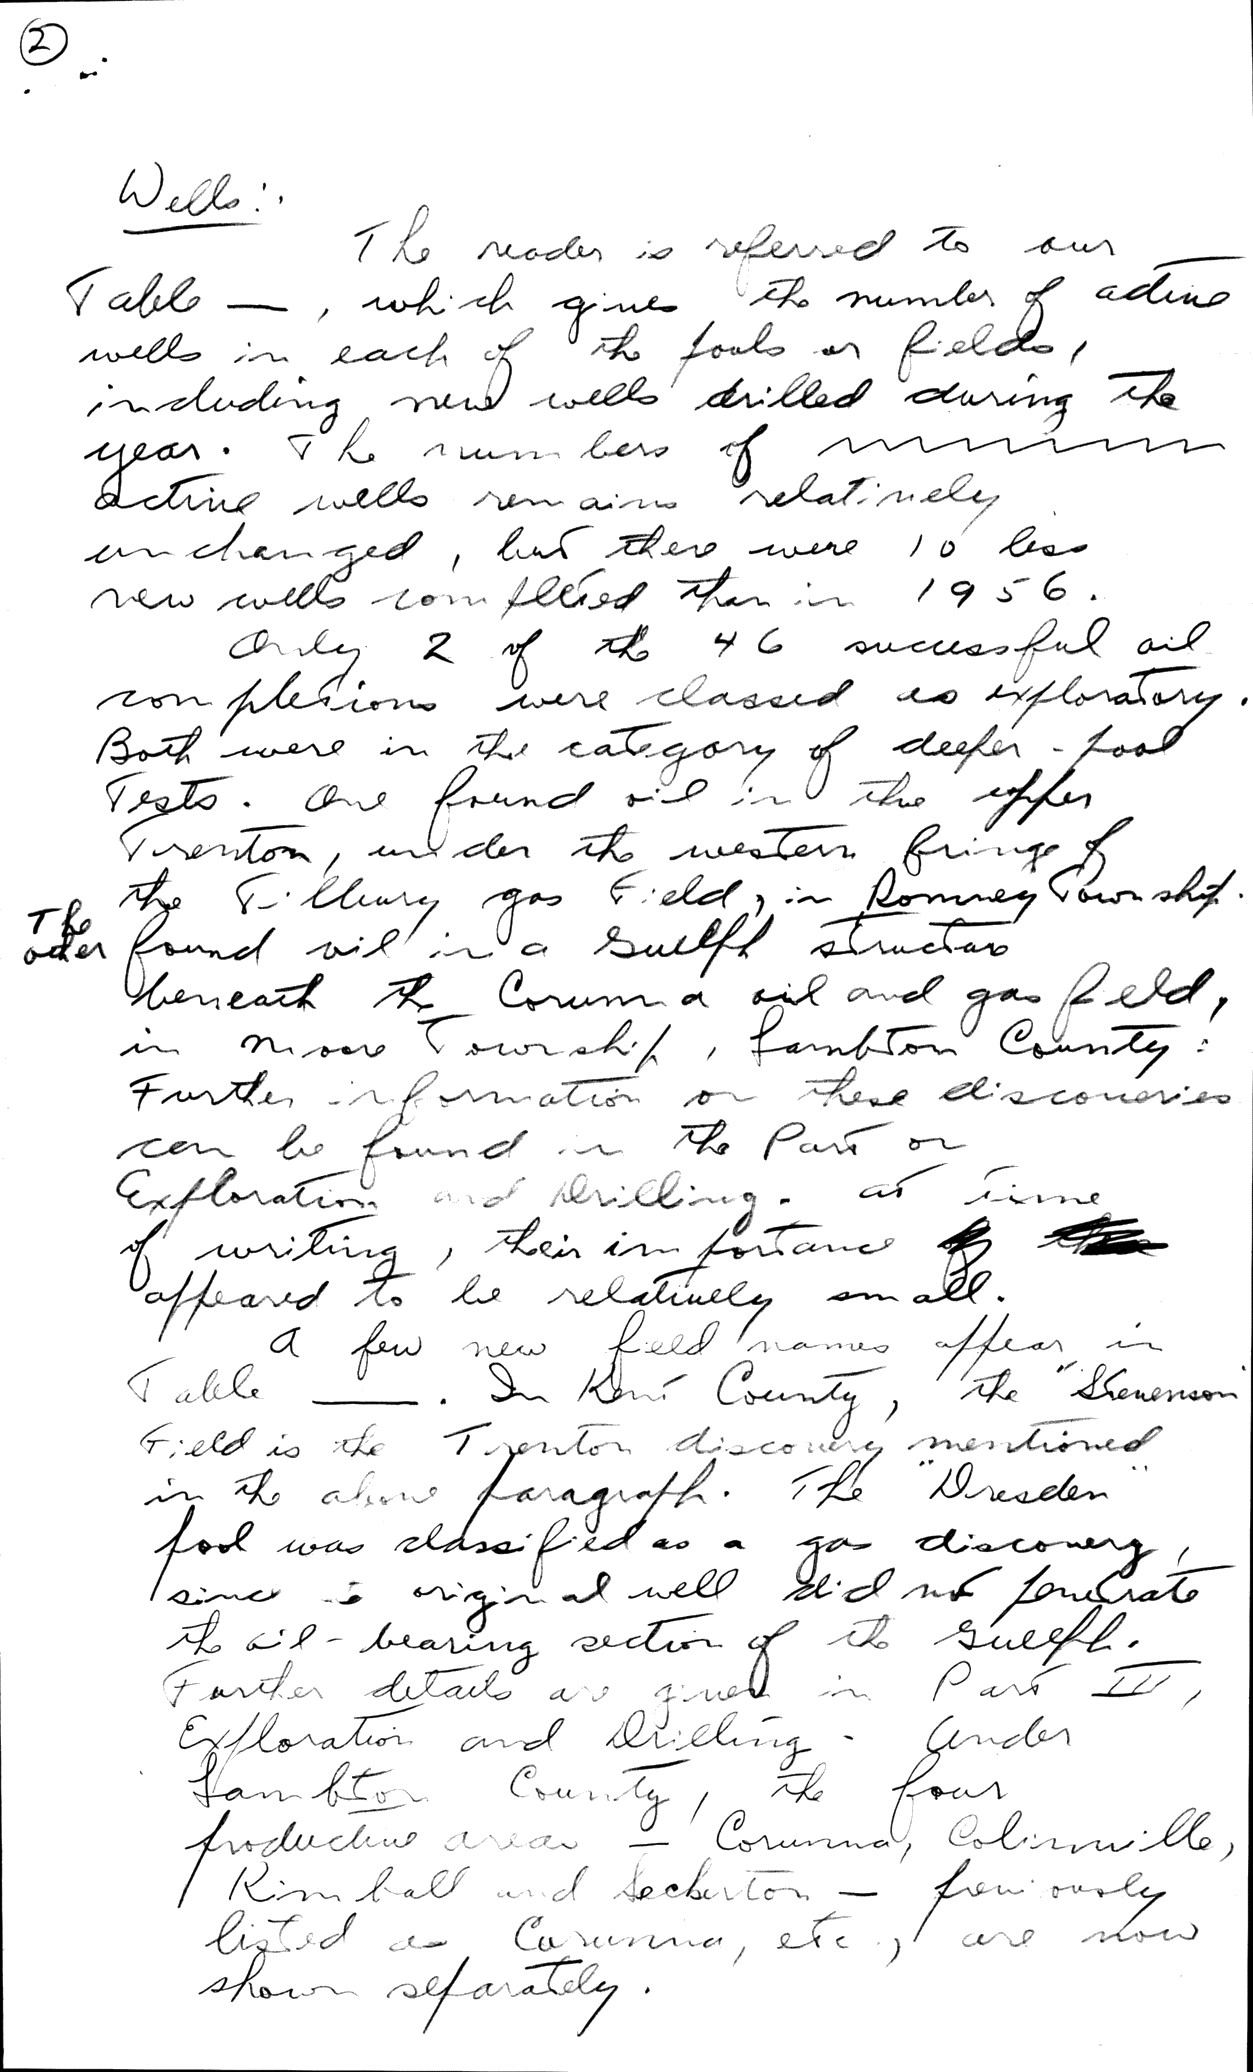 2
Wells:
The reader is referred to our
Table —, which gives the number of active
wells in each of the pools or fields,
including new wells drilled during the
year. The numbers of
active wells remains relatively
unchanged, but there were 10 less
new wells completed than in 1956.
Only 2 of the 46 successful oil
completions were classed as exploratory.
Both were in the category of deeper-pool
Tests. One found oil in the upper
Trenton, under the western fringe of
the Tilbury gas Field, in Romney Township.
The other found oil in a Guelph structure
beneath the Corunna oil and gas field,
in Moore Township, Lambton County.
Further information on these discoveries
can be found in the Part on
Exploration and Drilling. At time
of writing, their importance
appeared to be relatively small.
A few new field names appear in
Table —. In Kent County, the "Stevenson"
Field is the Trenton discovery mentioned
in the above paragraph. The "Dresden"
pool was classified as a gas discovery,
since original well did not penetrate
the oil-bearing section of the Guelph.
Further details are given in Part III,
Exploration and Drilling. Under
Lambton County, the four
productive areas — Corunna, Colinville,
Kimball and Seckerton — previously
listed as Corunna, etc., are now
shown separately.